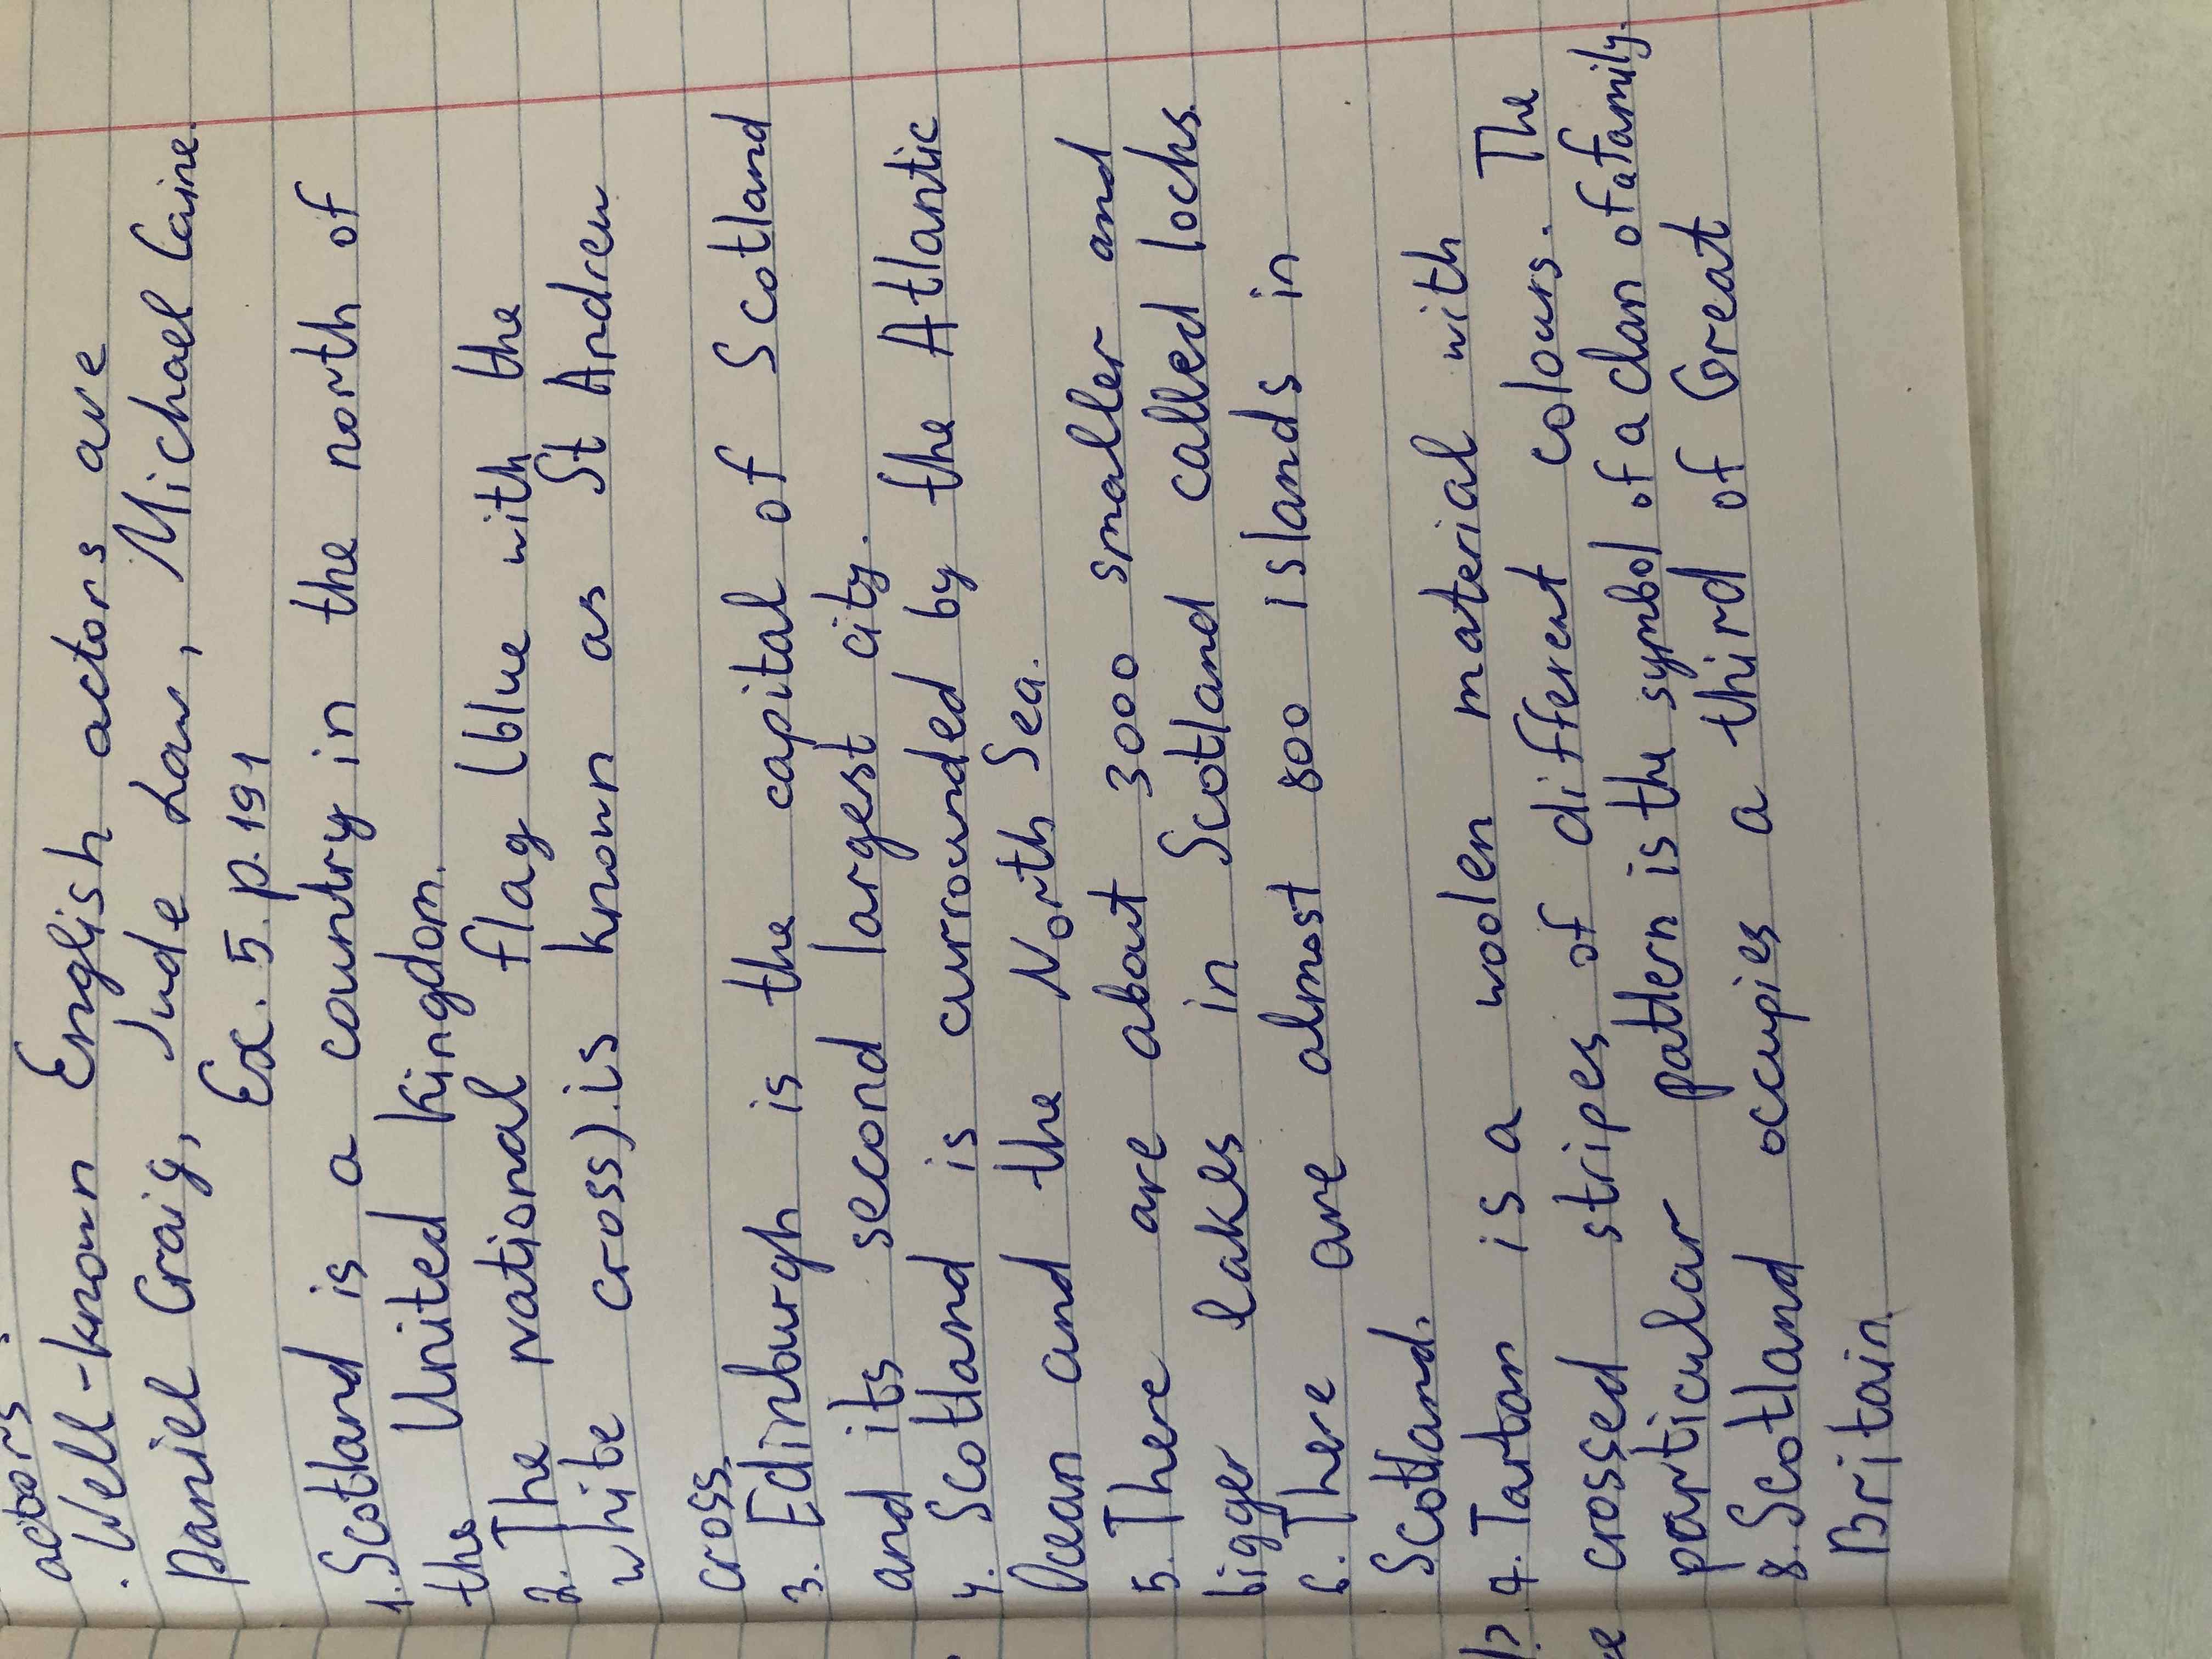 actors.
. Well-known English actors are
Daniel Craig, Jude Law, Michael Caine.
Ex. 5. p. 191
1. Scotland is a country in the north of
the United Kingdom.
2. The national flag (blue with the
white cross) is known as St Andrew
cross.
3. Edinburgh is the capital of Scotland
and its second largest city.
4. Scotland is currounded by the Atlantic
Ocean and the North Sea.
5. There are about 3000 smaller and
bigger lakes in Scotland called lochs.
6. There are almost 800 islands in
Scotland.
7. Tartan is a woolen material with
crossed stripes of different colours. The
particular pattern is the symbol of a clan of a family.
8. Scotland occupies a third of Great
Britain.